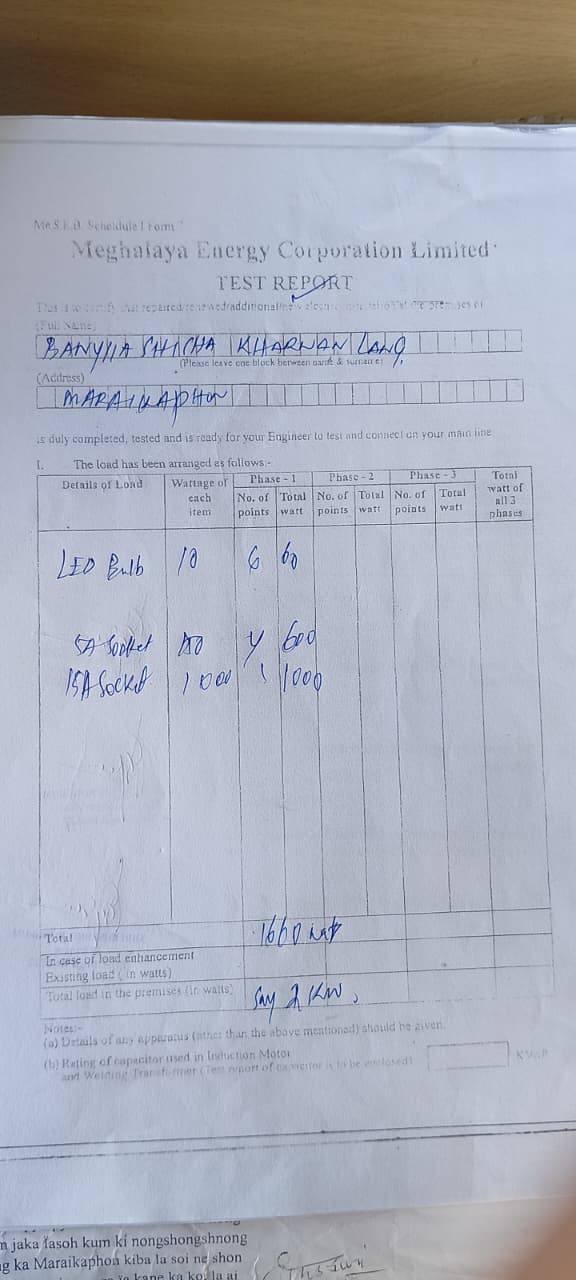 Me.S.E.B. Scheldule I Form
Meghalaya Energy Corporation Limited
TEST REPORT
This is to certify that repaired/renewed/additional/new electric installation at the premises of
(Full Name)
BANYLLA SHISHA KHARNAN LANG
(Please leave one block between name & surname)
(Address)
MARAIKAPHON
is duly completed, tested and is ready for your Engineer to test and connect on your main line
I. The load has been arranged as follows:-
Details of Load Wattage of each item Phase - 1 Phase - 2 Phase - 3 Total watt of all 3 phases
No. of points Total watt No. of points Total watt No. of points Total watt
LED Bulb 10 6 60
5A Socket 4 600
15A Socket 1000 1 1000
Total 1660 watt
In case of load enhancement
Existing load (in watts)
Total load in the premises (in watts) Say 2 KW,
Notes:-
(a) Details of any apparatus (other than the above mentioned) should be given.
(b) Rating of capacitor used in Induction Motor
and Welding Transformer (Test report of capacitor is to be enclosed) KVAR
jaka Iasoh kum ki nongshongshnong
ka Maraikaphon kiba la soi ne shon